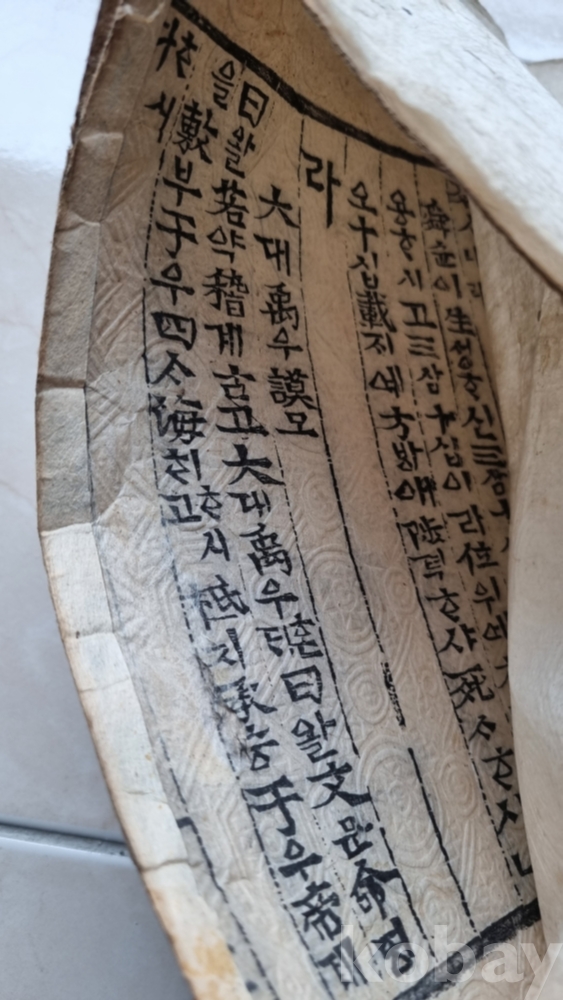 舜슌이生ᄉᆡᆼᄒᆞ신三삼
용ᄒᆞ시고三삼十십이라位위예
오十십載ᄌᆡ예方방애陟텩ᄒᆞ샤死ᄉᆞᄒᆞ시니
라
大대禹우謨모
曰왈若약稽계古고大대禹우ᄒᆞᆫᄃᆡ曰왈文문命명
을敷부于우四ᄉᆞ海ᄒᆡᄒᆞ시고祗지承승于우帝뎨
kobay